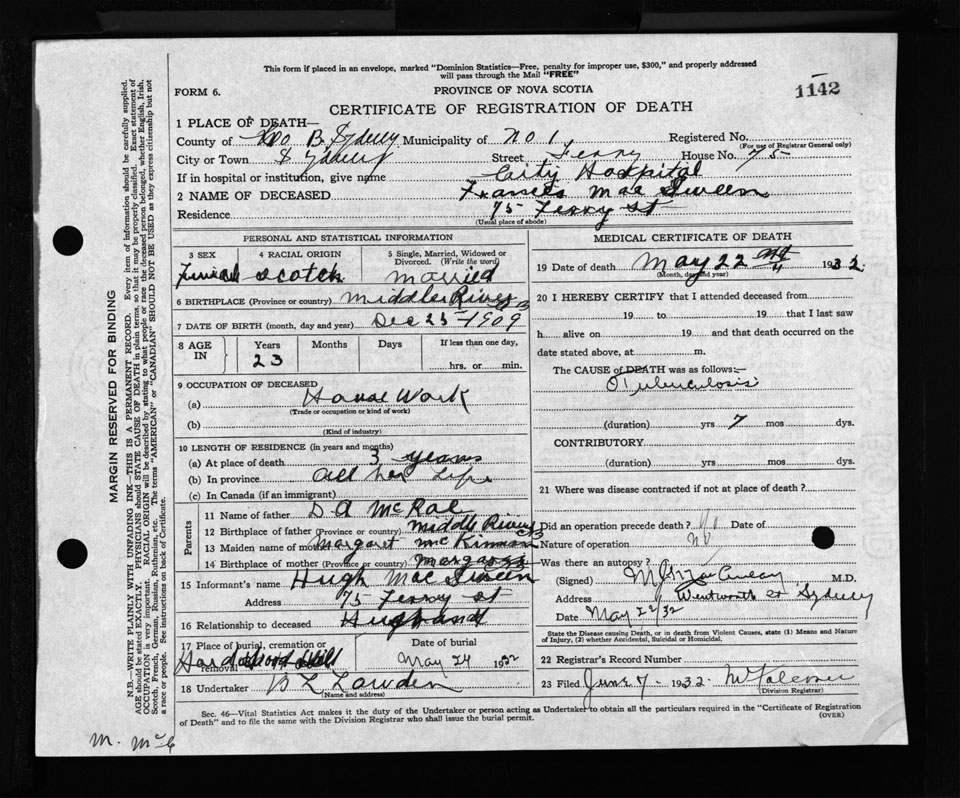 This form if placed in an envelope, marked "Dominion Statistics—Free, penalty for improper use, $300," and properly addressed
will pass through the Mail "FREE"
FORM 6. PROVINCE OF NOVA SCOTIA 1142
CERTIFICATE OF REGISTRATION OF DEATH
1 PLACE OF DEATH—
County of B Sydney Municipality of No 1 Registered No.
(For use of Registrar General only)
City or Town Sydney Street Ferry House No. 75
If in hospital or institution, give name City Hospital
2 NAME OF DECEASED Frances Mac Sween
Residence 75 Ferry St
(Usual place of abode)
PERSONAL AND STATISTICAL INFORMATION
3 SEX 4 RACIAL ORIGIN 5 Single, Married, Widowed or Divorced. (Write the word)
Female Scotch Married
6 BIRTHPLACE (Province or country) Middle River CB
7 DATE OF BIRTH (month, day and year) Dec 25 1909
8 AGE IN Years Months Days If less than one day,
23 hrs. or min.
9 OCCUPATION OF DECEASED
(a) House Work
(Trade or occupation or kind of work)
(b)
(Kind of industry)
10 LENGTH OF RESIDENCE (in years and months)
(a) At place of death 3 years
(b) In province All her Life
(c) In Canada (if an immigrant)
Parents
11 Name of father D A McRae
12 Birthplace of father (Province or country) Middle River CB
13 Maiden name of mother Margaret McKinnon
14 Birthplace of mother (Province or country) Margaree CB
15 Informant's name Hugh Mac Sween
Address 75 Ferry St
16 Relationship to deceased Husband
17 Place of burial, cremation or removal Date of burial
May 24 1932
18 Undertaker B L
(Name and address)
MEDICAL CERTIFICATE OF DEATH
19 Date of death May 22 nd 1932
(Month, day and year)
20 I HEREBY CERTIFY that I attended deceased from
19 to 19 that I last saw
h alive on 19 and that death occurred on the
date stated above, at m.
The CAUSE of DEATH was as follows:—
Tuberculosis
(duration) yrs 7 mos dys.
CONTRIBUTORY
(duration) yrs mos dys.
21 Where was disease contracted if not at place of death?
Did an operation precede death? No Date of
Nature of operation No
Was there an autopsy?
(Signed) M.D.
Address Wentworth St Sydney
Date May 22/32
State the Disease causing Death, or in death from Violent Causes, state (1) Means and Nature
of Injury, (2) whether Accidental, Suicidal or Homicidal.
22 Registrar's Record Number
23 Filed June 7 1932
(Division Registrar)
Sec. 46—Vital Statistics Act makes it the duty of the Undertaker or person acting as Undertaker to obtain all the particulars required in the "Certificate of Registration
of Death" and to file the same with the Division Registrar who shall issue the burial permit. (OVER)
MARGIN RESERVED FOR BINDING
N.B.—WRITE PLAINLY WITH UNFADING INK—THIS IS A PERMANENT RECORD. Every item of information should be carefully supplied.
AGE should be stated EXACTLY. PHYSICIANS should STATE CAUSE OF DEATH in plain terms, so that it may be properly classified. Exact statement of
OCCUPATION is very important. RACIAL ORIGIN will be described by stating to what people or race the deceased person belonged, whether English, Irish,
Scotch, French, German, Russian, Ruthenian, etc. The terms "AMERICAN" or "CANADIAN" SHOULD NOT BE USED as they express citizenship but not
a race or people. See instructions on back of Certificate.
M. McC